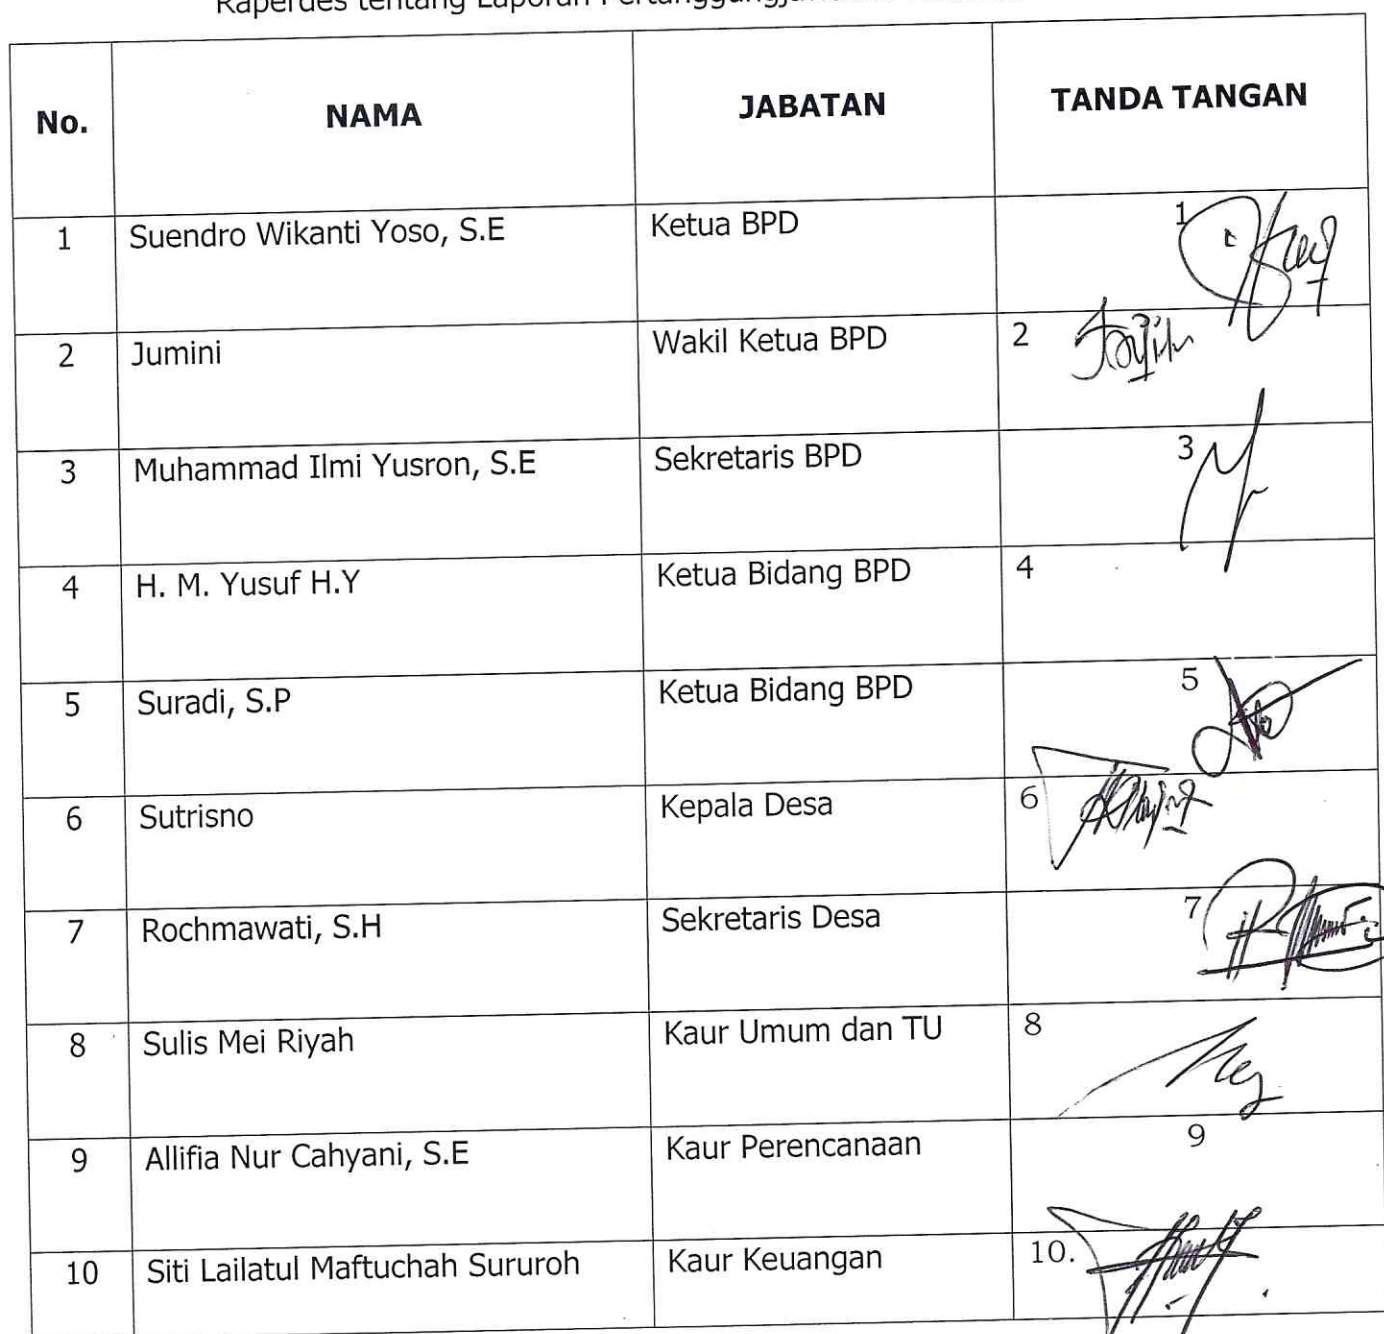 Raperdes tentang Laporan
No. NAMA JABATAN TANDA TANGAN
1 Suendro Wikanti Yoso, S.E Ketua BPD 1
2 Jumini Wakil Ketua BPD 2
3 Muhammad Ilmi Yusron, S.E Sekretaris BPD 3
4 H. M. Yusuf H.Y Ketua Bidang BPD 4
5 Suradi, S.P Ketua Bidang BPD 5
6 Sutrisno Kepala Desa 6
7 Rochmawati, S.H Sekretaris Desa 7
8 Sulis Mei Riyah Kaur Umum dan TU 8
9 Allifia Nur Cahyani, S.E Kaur Perencanaan 9
10 Siti Lailatul Maftuchah Sururoh Kaur Keuangan 10.